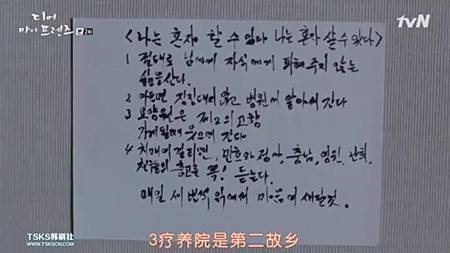 디어 마이 프렌즈 2회
tvN
<나는 혼자 할 수 있다 나는 혼자 살 수 있다>
1 절대로 남에게 자식에게 피해 주지 않는
삶을 산다.
2 아프면 징징대지 않고 병원에 알아서 간다
3 요양원은 제2의 고향
가게 될때 웃으며 간다
4 치매에 걸리면, 민호와 정아, 충남, 영원, 난희,
친구들의 충고를 꼭! 듣는다.
매일 세 번씩 외워서 마음에 새길것.
3疗养院是第二故乡
TSKS韩剧社
WWW.TSKSCN.COM